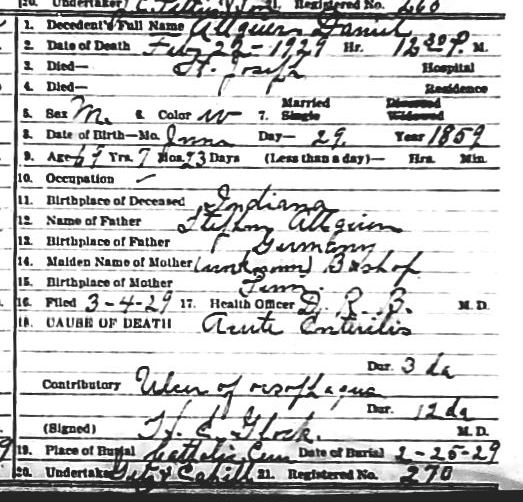 20. Undertaker 21. Registered No. 260
1. Decedent's Full Name Allgeier Daniel
2. Date of Death— Feb 22 - 1929 Hr. 12 30 P. M.
3. Died— St. Joseph Hospital
4. Died— Residence
5. Sex M. 6. Color W 7. Married Single Divorced Widowed
8. Date of Birth—Mo. June Day— 29. Year 1859
9. Age 69 Yrs. 7 Mos. 23 Days (Less than a day)— Hrs. Min.
10. Occupation
11. Birthplace of Deceased Indiana
12. Name of Father
13. Birthplace of Father Germany
14. Maiden Name of Mother (unknown) Bishop
15. Birthplace of Mother
16. Filed 3-4-29 17. Health Officer D. R. B. M. D.
18. CAUSE OF DEATH Acute Enteritis
Dur. 3 da
Contributory Ulcer of oesophagus
Dur. 12 da
(Signed) Glock. M. D.
19. Place of Burial Catholic Cem Date of Burial 2-25-29
20. Undertaker Getz & Cahill 21. Registered No. 270